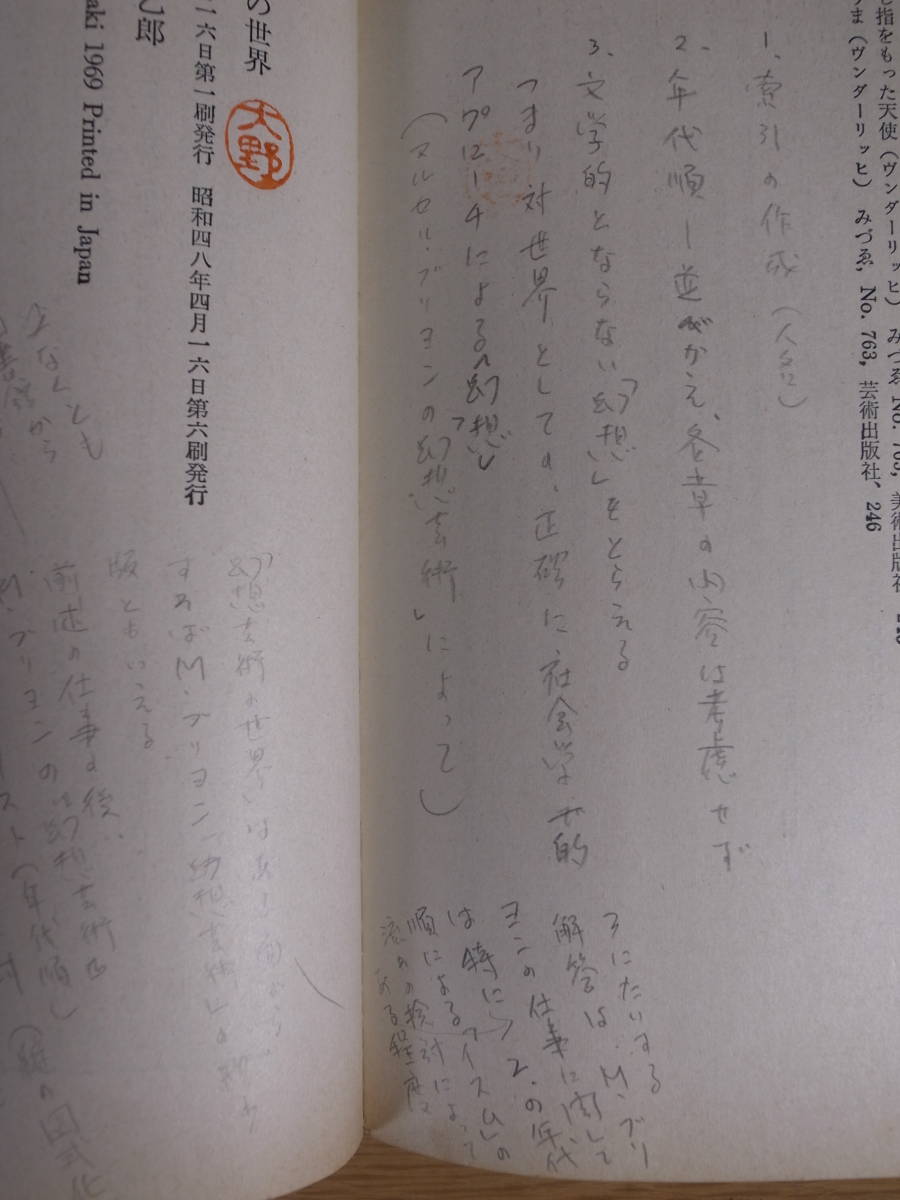 し指をもった天使(ヴンダーリッヒ)
うま(ヴンダーリッヒ) みづゑ、No. 763, 芸術出版社、246
1、索引の作成(人名)
2、年代順に並びかえ、各章の内容は考慮せず
3、文学的とならない「幻想」をとらえる
つまり対世界としての、正確に社会学的
アプローチによる「幻想」
(マルセル・ブリヨンの「幻想芸術」によって)
3にたいする
解答はM・ブリ
ヨンの仕事に関して
は特に 2.の年代
順による「イズム」の
流れの検討によって
ある程度
の世界
天野
一六日第一刷発行 昭和四八年四月一六日第六刷発行
郎
aki 1969 Printed in Japan
なくとも
から
「幻想芸術の世界」はある面から
すればM・ブリヨン「幻想芸術」の
版ともいえる
前述の仕事の後、
M・ブリヨンの「幻想芸術」
リスト(年代順)
の図式化